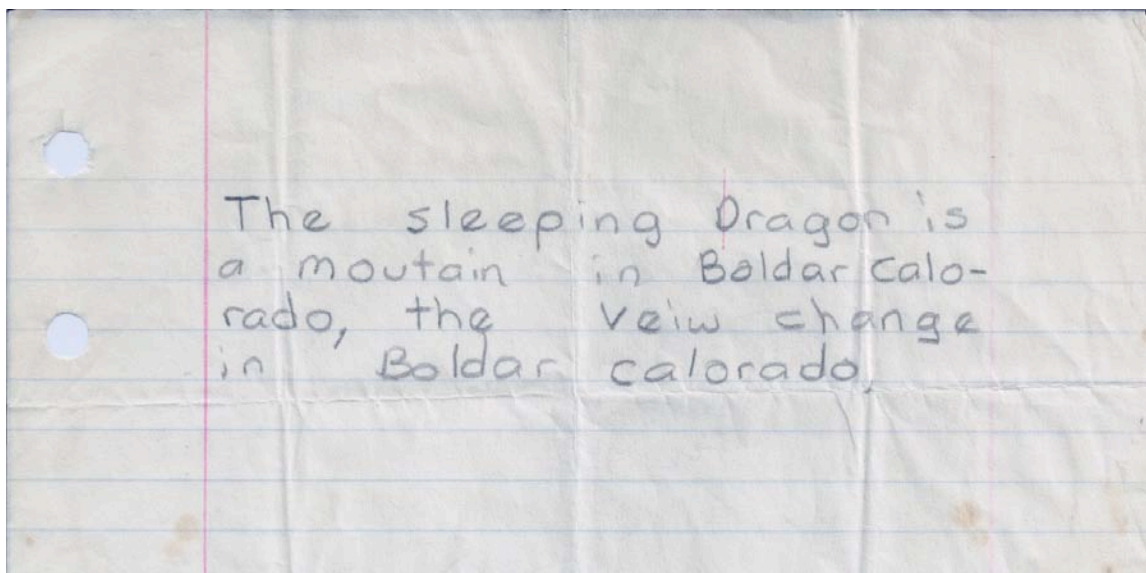 The sleeping Dragon is
a moutain in Boldar calo-
rado, the veiw change
in Boldar calorado